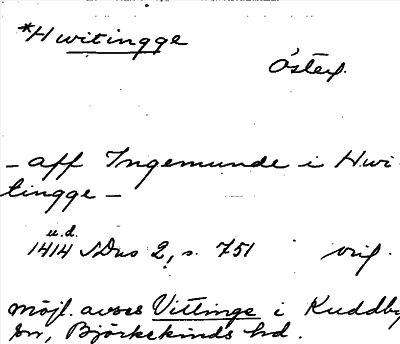 *Hwitingge
Österg.
– aff Ingemunde i Hwi-
tingge –
u.d.
1414 SDns 2, s. 751 orig.
möjl. avses Vittinge i Kuddby
sn, Björkekinds hd.